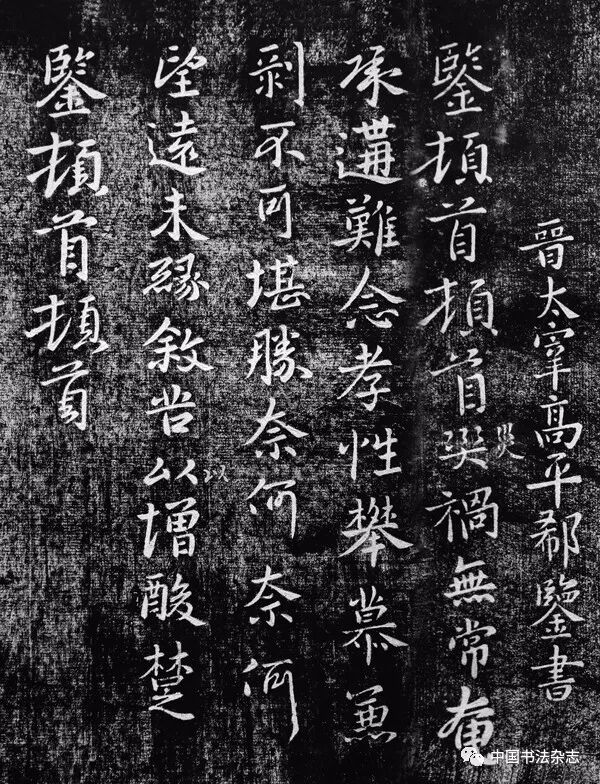 晉太宰高平郗鑒書
鑒頓首頓首災禍無常奄
災
承遘難念孝性攀慕兼
剥不可堪勝奈何奈何
望遠未緣敘苦以增酸楚
以
鑒頓首頓首
中国书法杂志